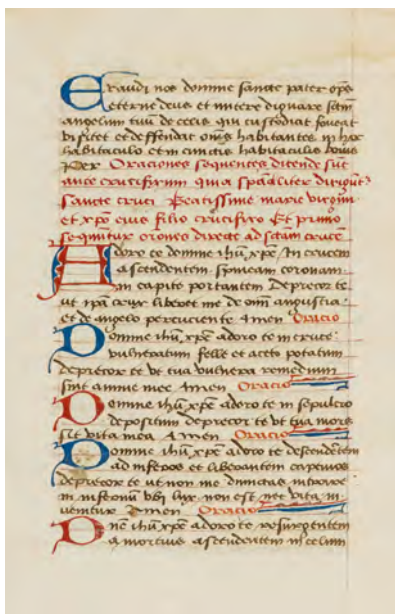 Exaudi nos domine sancte pater ops
eterne deus et mitere dignare scm
angelum tuu de celis qui custodiat foveat
visitet et deffendat oms habitantes in hoc
habitaculo et in cunctis habitaculis
Per Oraciones sequentes dicende sut
ante crucifixum quia spaliter dirigut
sancte cruci Beatissime marie virgini
et xpo eius filio crucifixo Et primo
sequitur orones directe ad scam cruce
Adoro te domine ihu xpe In crucem
ascendentem spineam coronam
in capite portantem Deprecor te
ut ipa crux liberet me de omi angustia
et de angelo percuciente Amen Oracio
Domine ihu xpe adoro te in cruce
vulneratum felle et aceto potatum
deprecor te ut tua vulnera remedium
sint anime mee Amen Oracio
Domine ihu xpe adoro te in sepulcro
depositum deprecor te vt tua mors
sit vita mea Amen Oracio
Domine ihu xpe adoro te descendetem
ad inferos et liberantem captivos
deprecor te ut non me dimictas introire
in infernum vbi lux non est nec vita in-
venitur Amen Oracio
Dne ihu xpe adoro te resurgentem
a mortuis ascendentem in celum